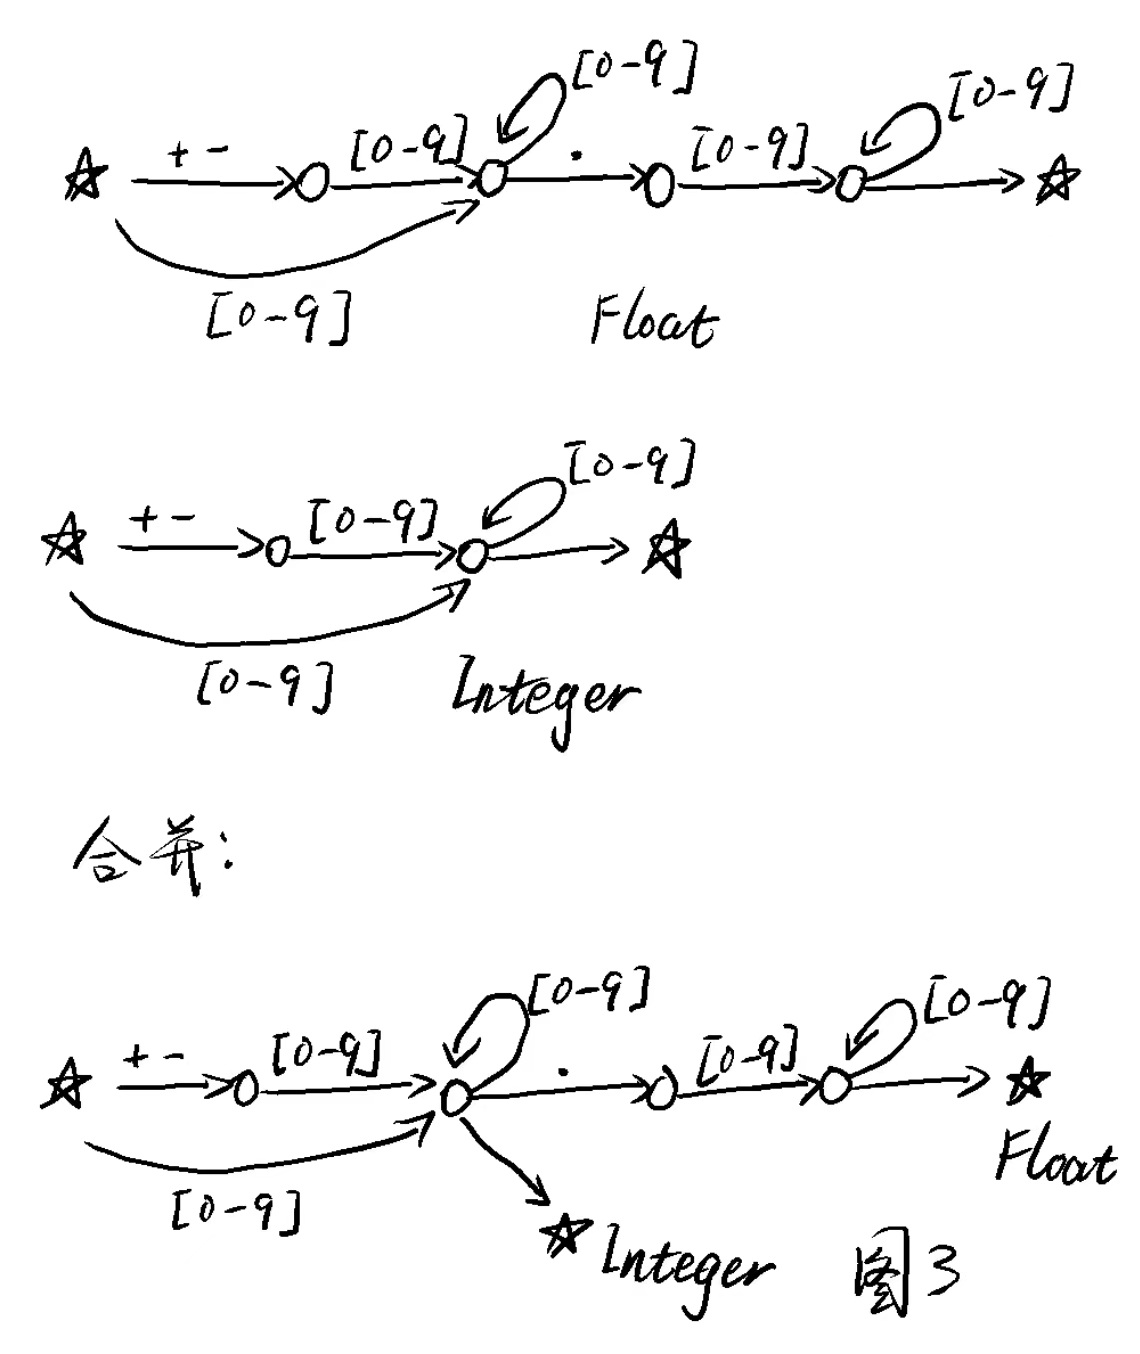 [0-9] [0-9]
+ - [0-9] . [0-9]
[0-9] Float
[0-9]
+ - [0-9]
[0-9] Integer
合并:
[0-9] [0-9]
+ - [0-9] . [0-9]
Float
[0-9]
Integer 图3